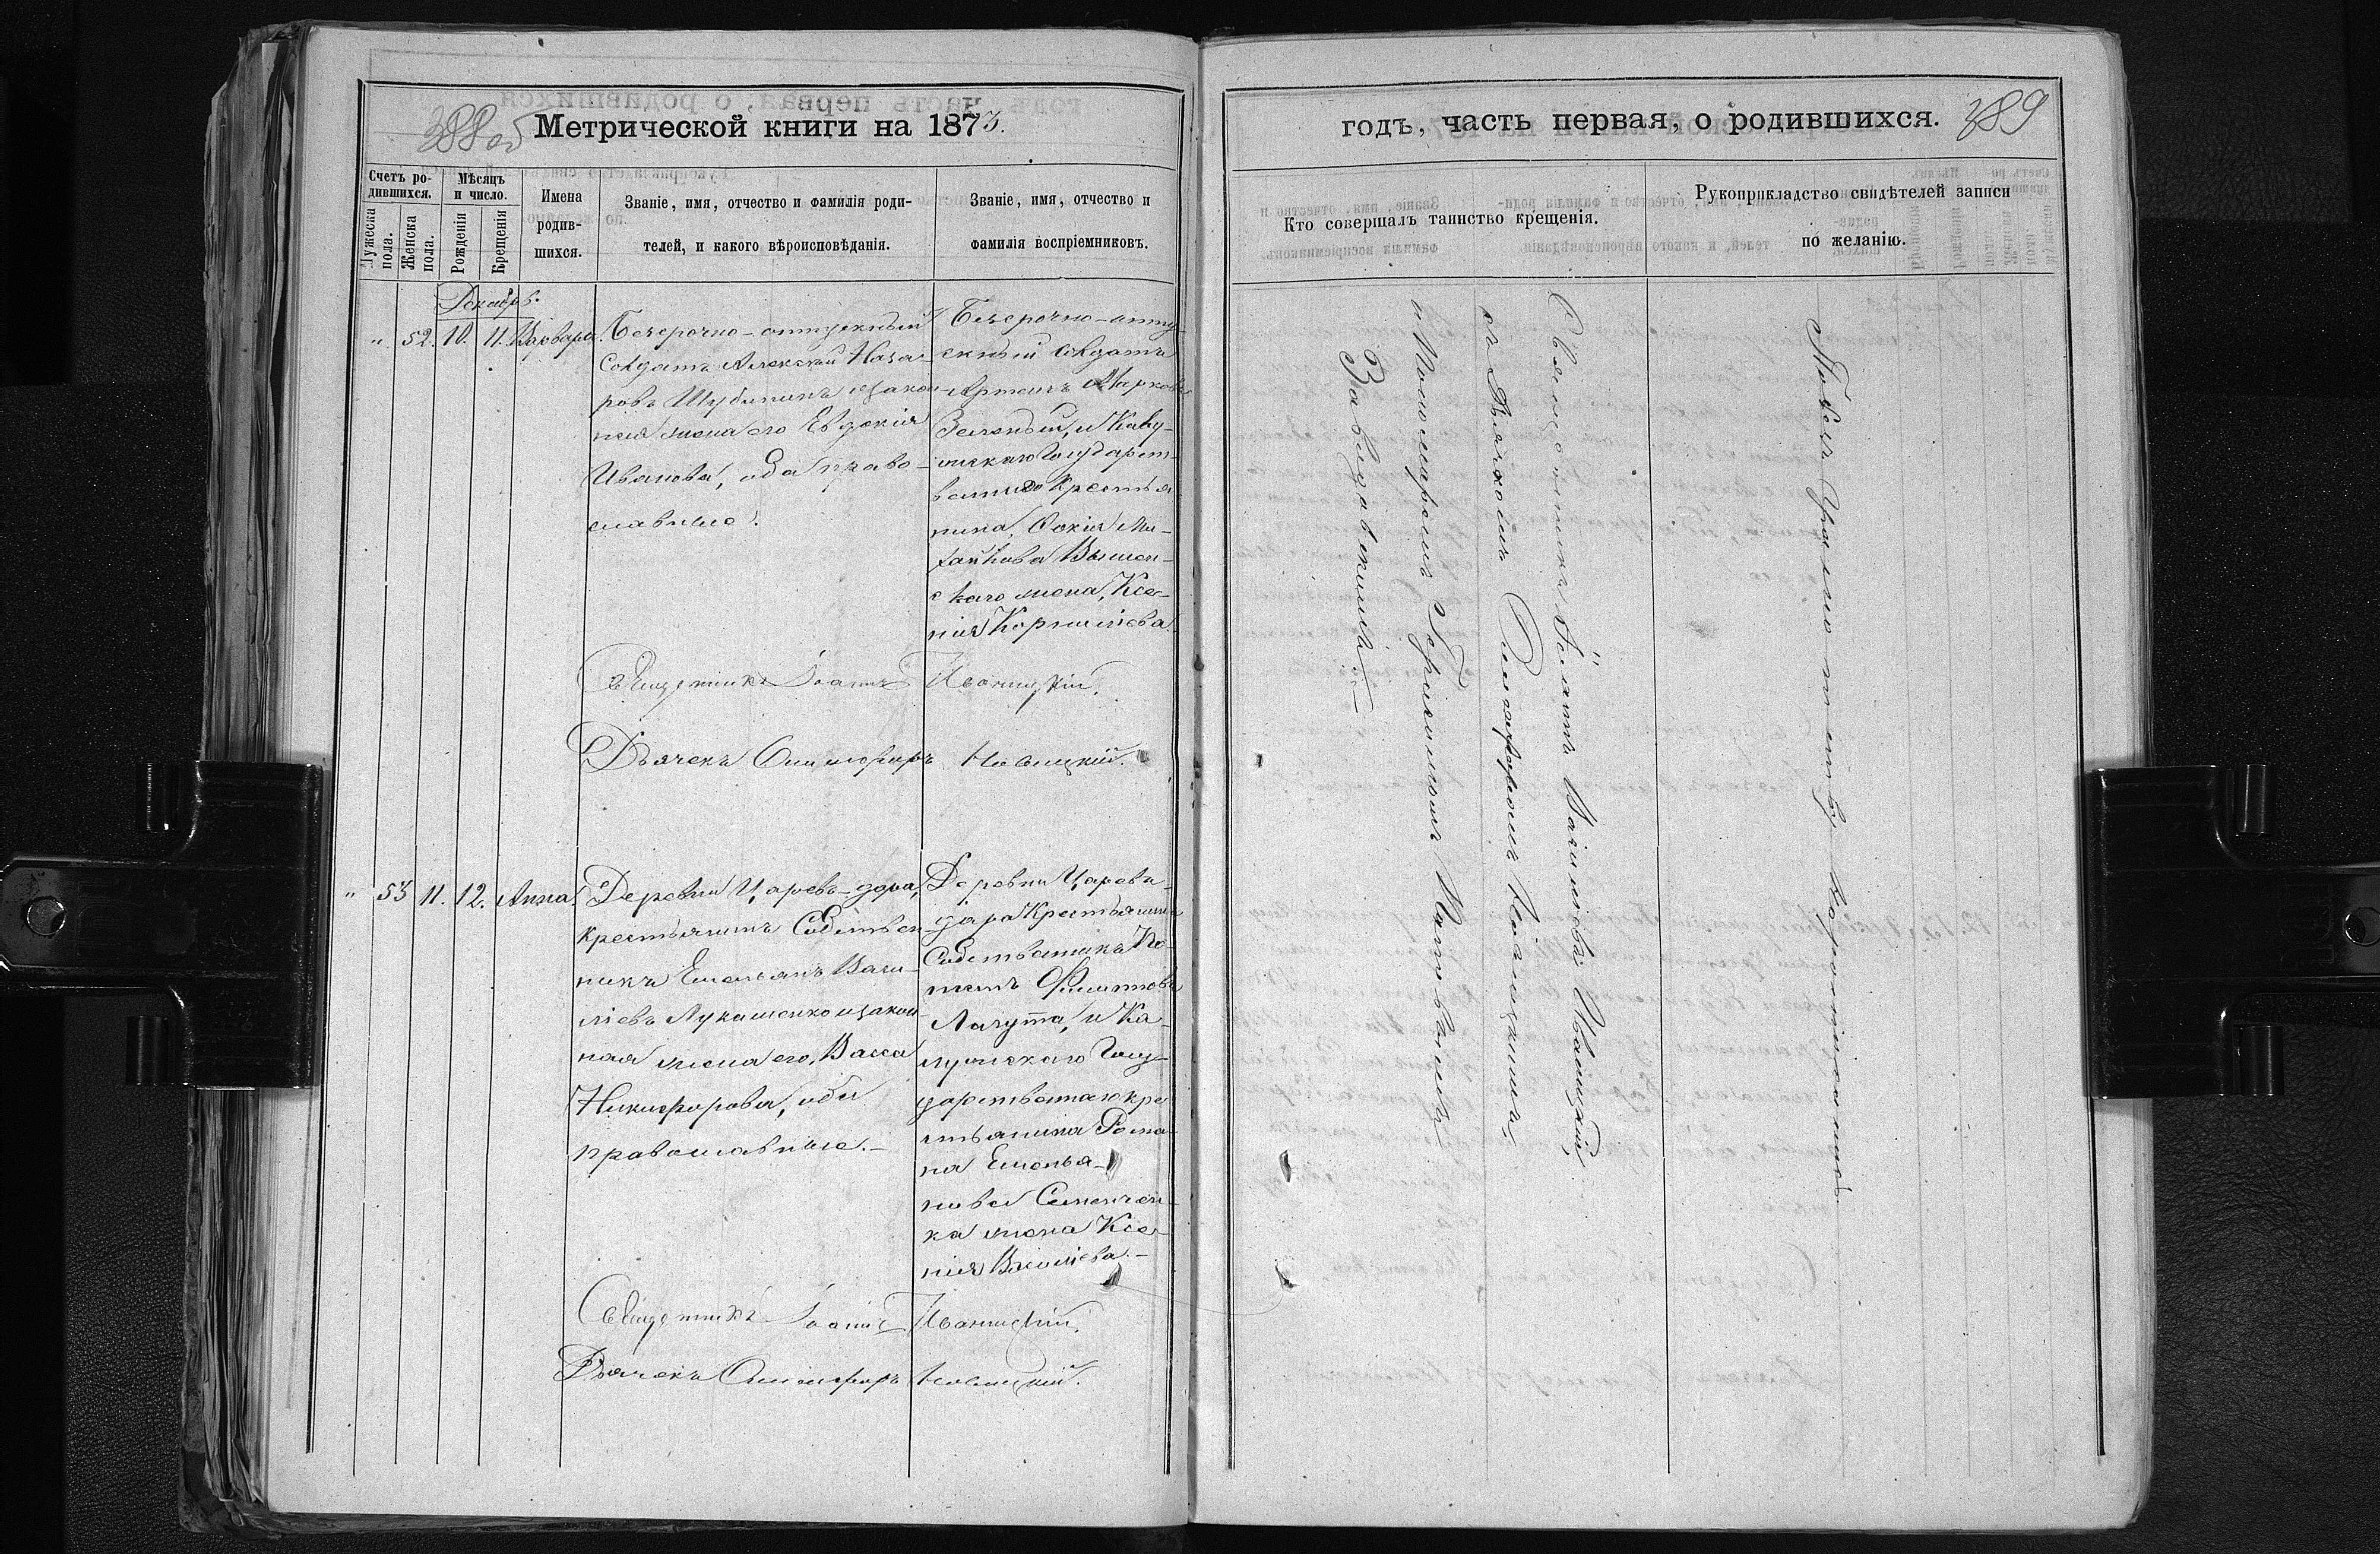 388 об
Метрической книги на 1873.
Счетъ ро-
дившихся.
Мѣсяцъ
и число.
Мужеска
пола.
Женска
пола.
Рожденія
Крещенія
Имена
родив-
шихся.
Званіе, имя, отчество и фамилія роди-
телей, и какого вѣроисповѣданія.
Званіе, имя, отчество и
фамилія воспріемниковъ.
Декабрь.
" 52. 10. 11. Варвара.
Безсрочно-отпускный
Солдатъ Алексѣй Наза-
ровъ Шубинъ изакон-
ная жена его Евдокія
Иванова, оба право-
славные.
Безсрочно-отпу-
скный Солдатъ
Артемъ Марковъ
Зеленый, и
Государст-
веннаго крестья-
нина, Фокія Ми-
хайлова
жена, Ксе-
нія Корнилієва.
Священникъ Іоаннъ Иваницкій.
Дьячекъ Онисифоръ Новицкій.
" 53 11. 12. Анна.
Деревни Царевъ-дара,
крестьянинъ Собствен
никъ Емельянъ Васи-
ліевъ Лукашенко изакон-
ная жена его, Васса
Никифорова, оба
православные.-
Деревни Царевъ-
дара Крестьянинъ
Собственникъ По-
тапъ Филиповъ
Лагута, и Ка-
Госу-
дарственнаго кре
стьянина Рома-
на Емелья-
нова Семенчен-
ка жена Ксе-
нія Василієва.-
Священникъ Іоаннъ Иваницкій.
Дьячекъ Онисифоръ Новицкій.
годъ, часть первая, о родившихся.
389
Кто совершалъ таинство крещенія.
Рукоприкладство свидѣтелей записи
по желанію.
Священникъ Іоаннъ Василіевъ Иваницкій,
съ Дьячкомъ Онисифоромъ Новицкимъ,
и Пономаремъ